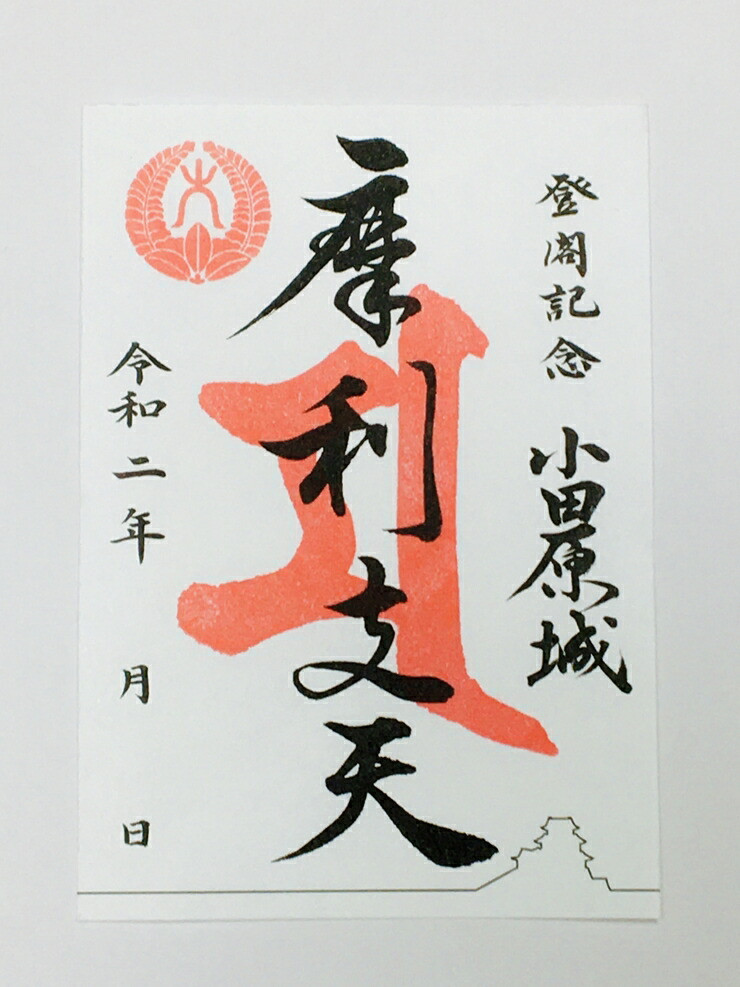 登閣記念 小田原城
摩利支天
令和二年 月 日
大